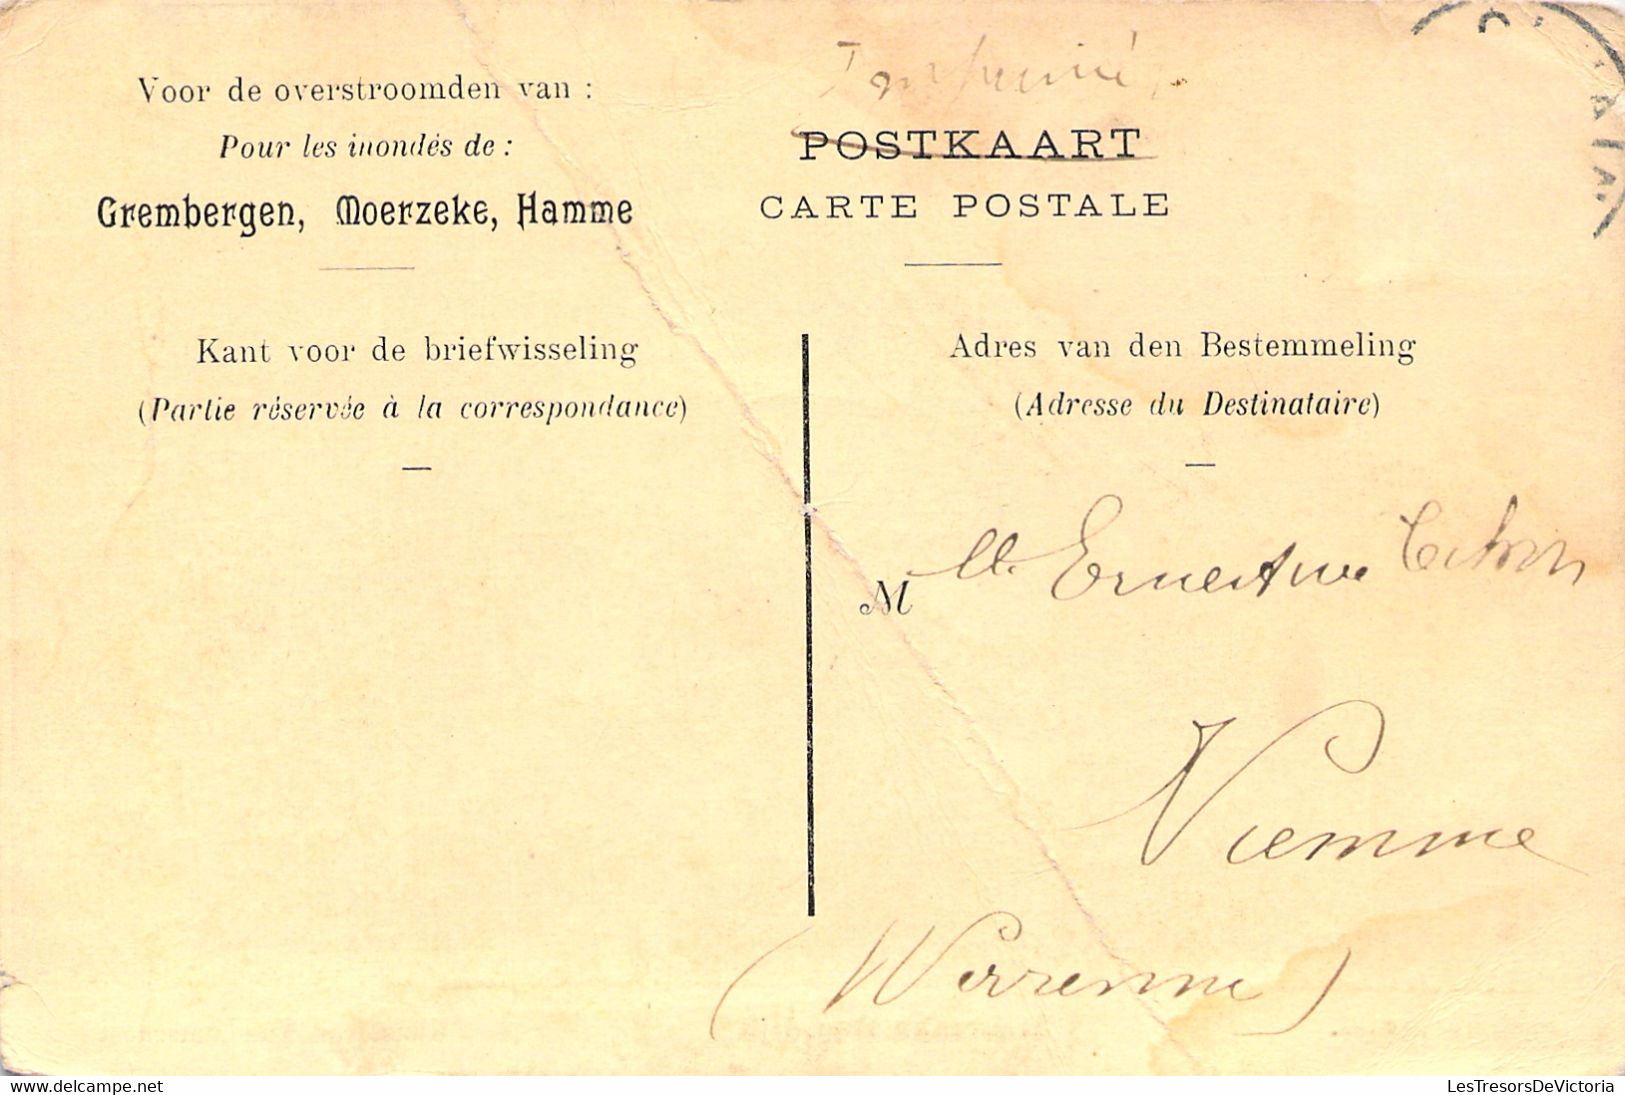 Voor de overstroomden van :
Pour les inondés de :
Grembergen, Moerzeke, Hamme
Kant voor de briefwisseling
(Partie réservée à la correspondance)
Imprimé
POSTKAART
CARTE POSTALE
Adres van den Bestemmeling
(Adresse du Destinataire)
Mlle Ernestine
Viemme
(Warremme)
www.delcampe.net
LesTresorsDeVictoria